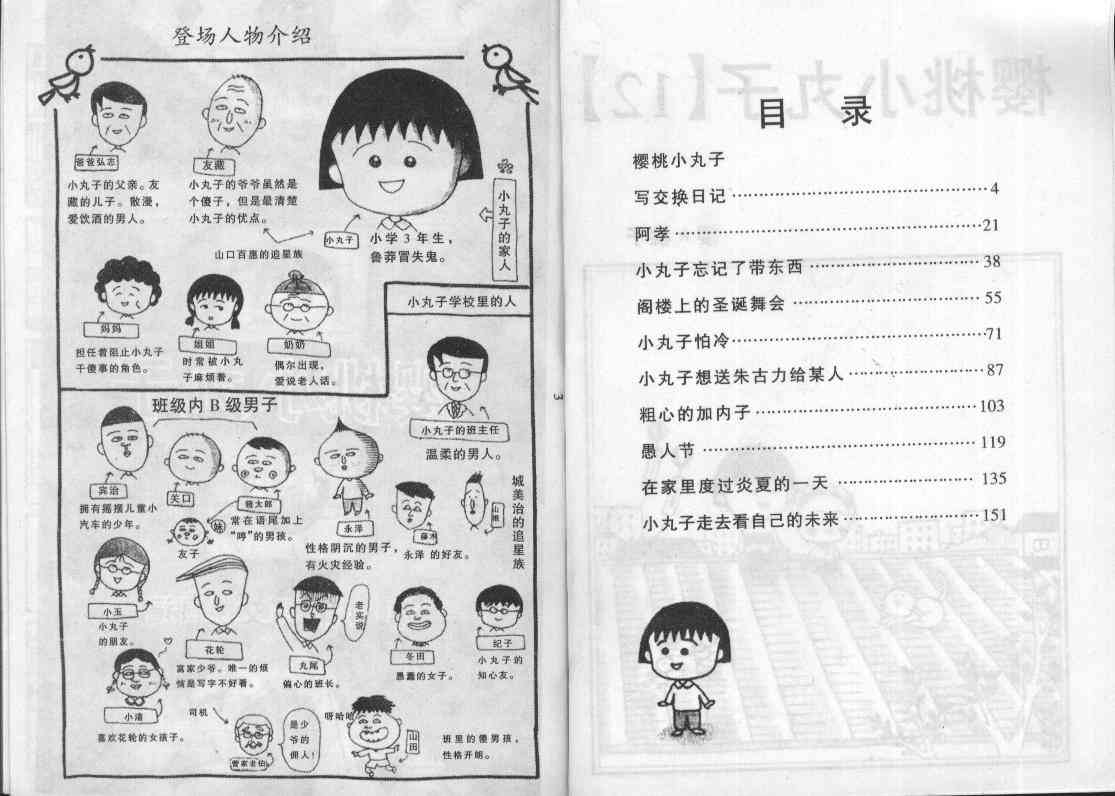 登场人物介绍
爸爸弘志
小丸子的父亲。友
藏的儿子。散漫，
爱饮酒的男人。
友藏
小丸子的爷爷虽然是
个傻子，但是最清楚
小丸子的优点。
山口百惠的追星族
小丸子
小学3年生，
鲁莽冒失鬼。
小丸子的家人
妈妈
担任着阻止小丸子
干傻事的角色。
姐姐
时常被小丸
子麻烦着。
奶奶
偶尔出现，
爱说老人话。
小丸子学校里的人
小丸子的班主任
温柔的男人。
班级内B级男子
宾治
拥有摇摆儿童小
汽车的少年。
关口
妹
友子
常在语尾加上
“哼”的男孩。
永泽
性格阴沉的男子，
有火灾经验。
藤木
永泽的好友。
山根
城美治的追星族
小玉
小丸子
的朋友。
花轮
富家少爷。唯一的烦
恼是写字不好看。
丸尾
偏心的班长。
老实说
冬田
愚蠢的女子。
纪子
小丸子的
知心友。
喜欢花轮的女孩子。
司机
管家老伯
是少
爷的
佣人！
呀哈哈
山田
班里的傻男孩，
性格开朗。
3
樱桃小丸子【12】
目 录
樱桃小丸子
写交换日记………………………………4
阿孝………………………………21
小丸子忘记了带东西………………………………38
阁楼上的圣诞舞会………………………………55
小丸子怕冷………………………………71
小丸子想送朱古力给某人………………………………87
粗心的加内子………………………………103
愚人节………………………………119
在家里度过炎夏的一天………………………………135
小丸子走去看自己的未来………………………………151